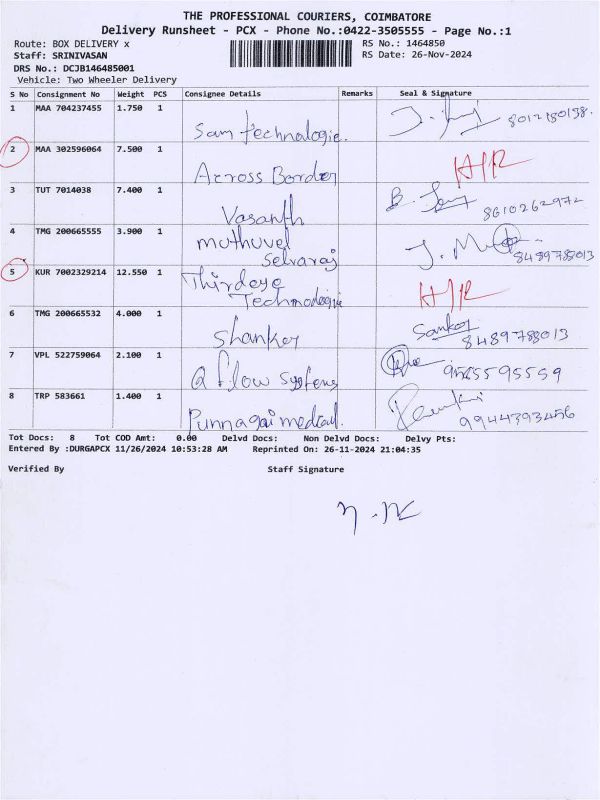 THE PROFESSIONAL COURIERS, COIMBATORE
Delivery Runsheet - PCX - Phone No.:0422-3505555 - Page No.:1
Route: BOX DELIVERY x RS No.: 1464850
Staff: SRINIVASAN RS Date: 26-Nov-2024
DRS No.: DCJB146485001
Vehicle: Two Wheeler Delivery
S No Consignment No Weight PCS Consignee Details Remarks Seal & Signature
1 MAA 704237455 1.750 1 Sam technologie.
2 MAA 302596064 7.500 1 Across Border
3 TUT 7014038 7.400 1 Vasanth 8610262972
4 TMG 200665555 3.900 1 muthuvel
selvaraj 8489788013
5 KUR 7002329214 12.550 1 Thirdeye
Technologie
6 TMG 200665532 4.000 1 Shanker Sanker
8489788013
7 VPL 522759064 2.100 1 Q flow systems 9585595559
8 TRP 583661 1.400 1 Punnagai medcal. 9944393456
Tot Docs: 8 Tot COD Amt: 0.00 Delvd Docs: Non Delvd Docs: Delvy Pts:
Entered By :DURGAPCX 11/26/2024 10:53:28 AM Reprinted On: 26-11-2024 21:04:35
Verified By Staff Signature